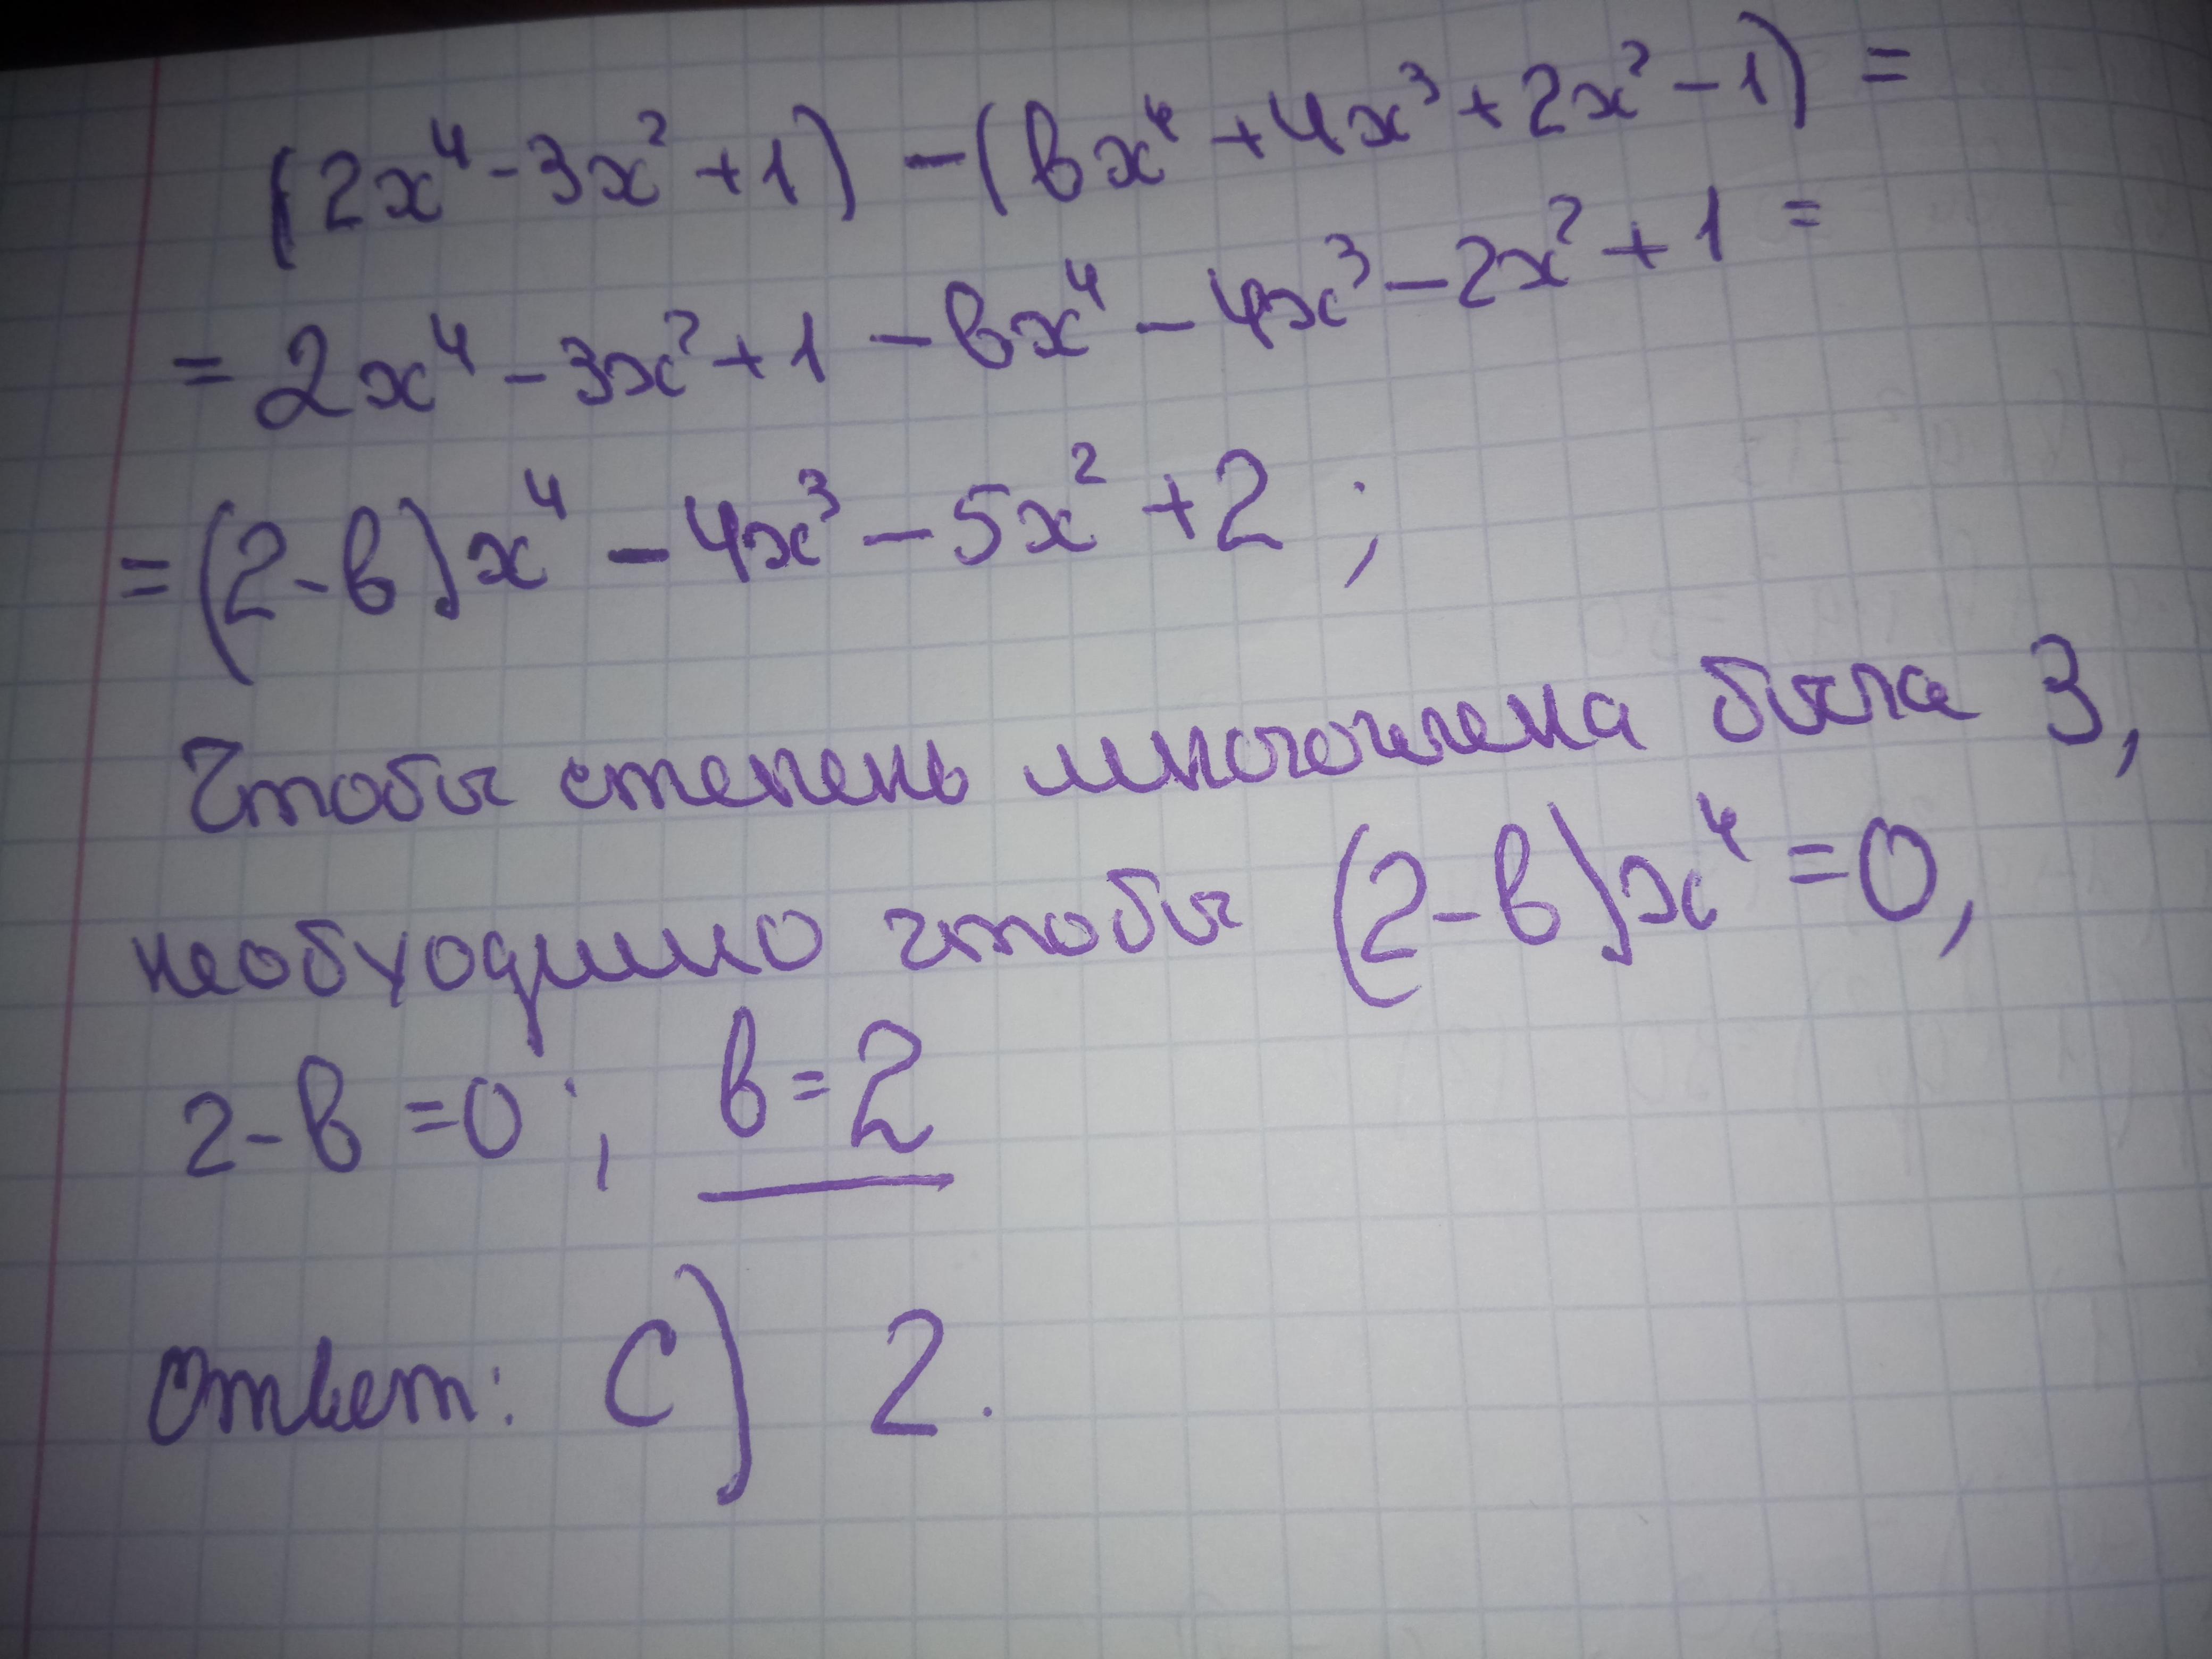 (2x⁴-3x²+1) -(вx⁴+4x³+2x²-1) =
= 2x⁴-3x²+1-вx⁴-4x³-2x²+1 =
=(2-в)x⁴-4x³-5x²+2;
Чтобы степень многочлена была 3,
необходимо чтобы (2-в)x⁴=0,
2-в=0; в=2
Ответ: С) 2.